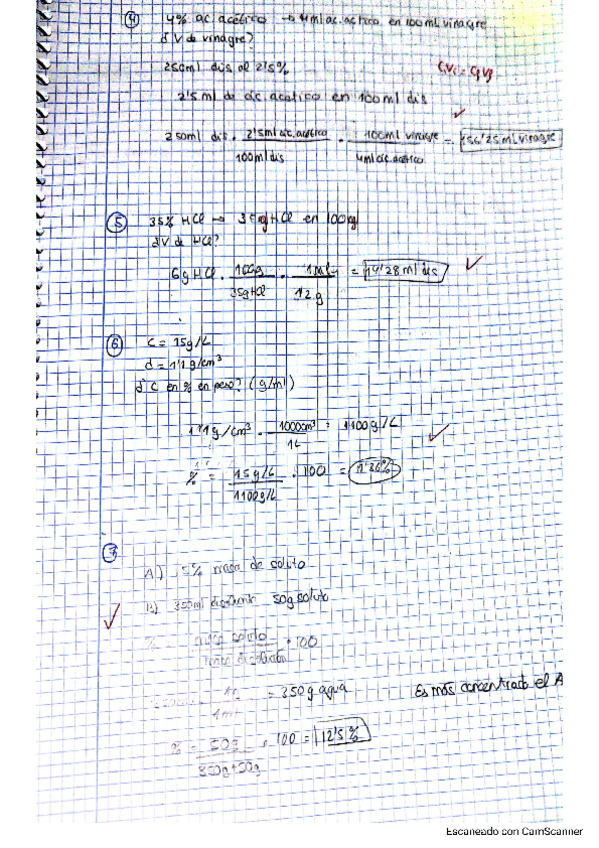 ④ 4% ac. acético → 4ml ac. acético en 100ml vinagre
¿V de vinagre?
250ml dis al 2'5%
C₁V₁ = C₂V₂
2'5 ml de ác. acético en 100ml dis
250ml dis · 2'5ml ác. acético / 100ml dis · 100ml vinagre / 4ml ác. acético = 156'25 ml vinagre
⑤ 35% HCl → 35g HCl en 100g
¿V de HCl?
6g HCl · 100g / 35g HCl · 1ml / 1'2 g = 14'28 ml dis
⑥ C = 15g/L
d = 1'1 g/cm³
¿C en % en peso? (g/ml)
1'1 g/cm³ · 1000cm³ / 1L = 1100g/L
% = 15g/L / 1100g/L · 100 = 1'36%
⑦
A) 15% masa de soluto
B) 350ml disolvente 50g soluto
% = masa soluto / masa disolución · 100
= 350g agua
Es más concentrado el A
% = 50g / 350g+50g · 100 = 12'5 %
Escaneado con CamScanner